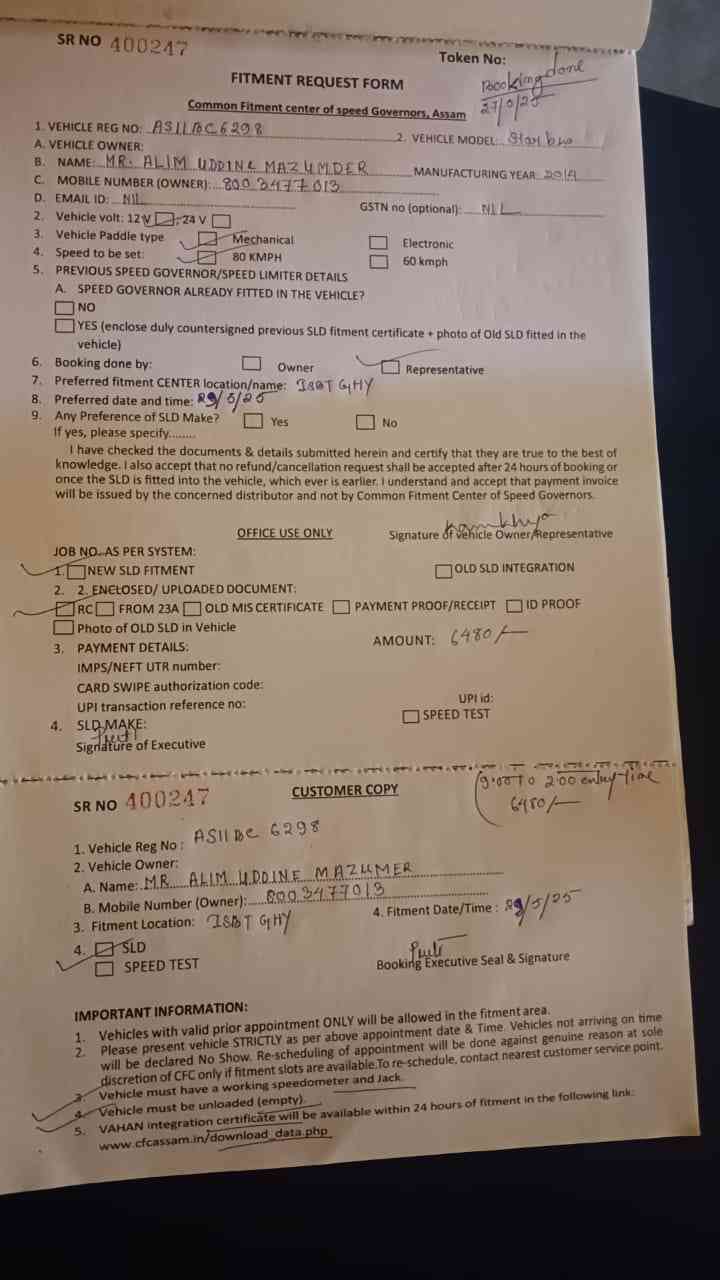 SR NO 400247
Token No:
Booking done
27/5/25
FITMENT REQUEST FORM
Common Fitment center of speed Governors, Assam
1. VEHICLE REG NO: AS11BC6298 2. VEHICLE MODEL: Star bus
A. VEHICLE OWNER:
B. NAME: MR. ALIM UDDINE MAZUMDER MANUFACTURING YEAR 2014
C. MOBILE NUMBER (OWNER): 8003477013
D. EMAIL ID: NIL GSTN no (optional): NIL
2. Vehicle volt: 12 V 24 V
3. Vehicle Paddle type Mechanical Electronic
4. Speed to be set: 80 KMPH 60 kmph
5. PREVIOUS SPEED GOVERNOR/SPEED LIMITER DETAILS
A. SPEED GOVERNOR ALREADY FITTED IN THE VEHICLE?
NO
YES (enclose duly countersigned previous SLD fitment certificate + photo of Old SLD fitted in the
vehicle)
6. Booking done by: Owner Representative
7. Preferred fitment CENTER location/name: ISBT GHY
8. Preferred date and time: 29/5/25
9. Any Preference of SLD Make? Yes No
If yes, please specify........
I have checked the documents & details submitted herein and certify that they are true to the best of
knowledge. I also accept that no refund/cancellation request shall be accepted after 24 hours of booking or
once the SLD is fitted into the vehicle, which ever is earlier. I understand and accept that payment invoice
will be issued by the concerned distributor and not by Common Fitment Center of Speed Governors.
OFFICE USE ONLY Signature of Vehicle Owner/Representative
JOB NO. AS PER SYSTEM:
1. NEW SLD FITMENT OLD SLD INTEGRATION
2. 2. ENCLOSED/ UPLOADED DOCUMENT:
RC FROM 23A OLD MIS CERTIFICATE PAYMENT PROOF/RECEIPT ID PROOF
Photo of OLD SLD in Vehicle
3. PAYMENT DETAILS: AMOUNT: 6480/-
IMPS/NEFT UTR number:
CARD SWIPE authorization code:
UPI transaction reference no: UPI id:
4. SLD MAKE: SPEED TEST
Signature of Executive
SR NO 400247 CUSTOMER COPY
9:00 TO 2:00 entry time
6480/-
1. Vehicle Reg No : AS11BC 6298
2. Vehicle Owner:
A. Name: MR ALIM UDDINE MAZUMER
B. Mobile Number (Owner): 8003477013
3. Fitment Location: ISBT GHY 4. Fitment Date/Time : 29/5/25
4. SLD
SPEED TEST Booking Executive Seal & Signature
IMPORTANT INFORMATION:
1. Vehicles with valid prior appointment ONLY will be allowed in the fitment area.
2. Please present vehicle STRICTLY as per above appointment date & Time. Vehicles not arriving on time
will be declared No Show. Re-scheduling of appointment will be done against genuine reason at sole
discretion of CFC only if fitment slots are available.To re-schedule, contact nearest customer service point.
3. Vehicle must have a working speedometer and Jack.
4. Vehicle must be unloaded (empty).
5. VAHAN integration certificate will be available within 24 hours of fitment in the following link:
www.cfcassam.in/download_data.php